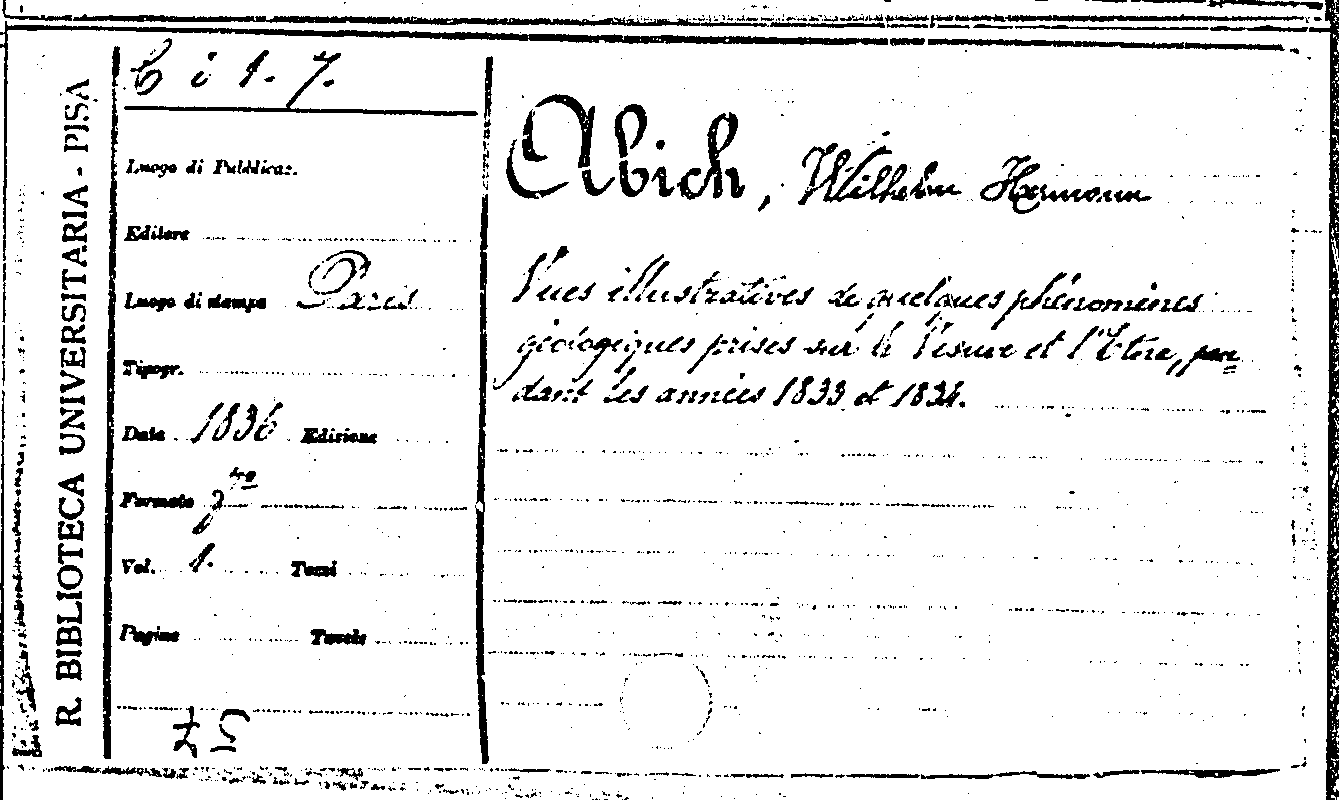 R. BIBLIOTECA UNIVERSITARIA - PISA
C i 1. 7.
Luogo di Pubblicaz.
Editore
Luogo di stampa Paris
Tipogr.
Data 1836 Edizione
Formato
Vol. 1. Tomi
Pagine Tavole
Abich, Wilhelm Hermann
Vues illustratives de quelques phénomènes
géologiques prises sur le Vésuve et l'Etna, pen=
dant les années 1833 et 1834.